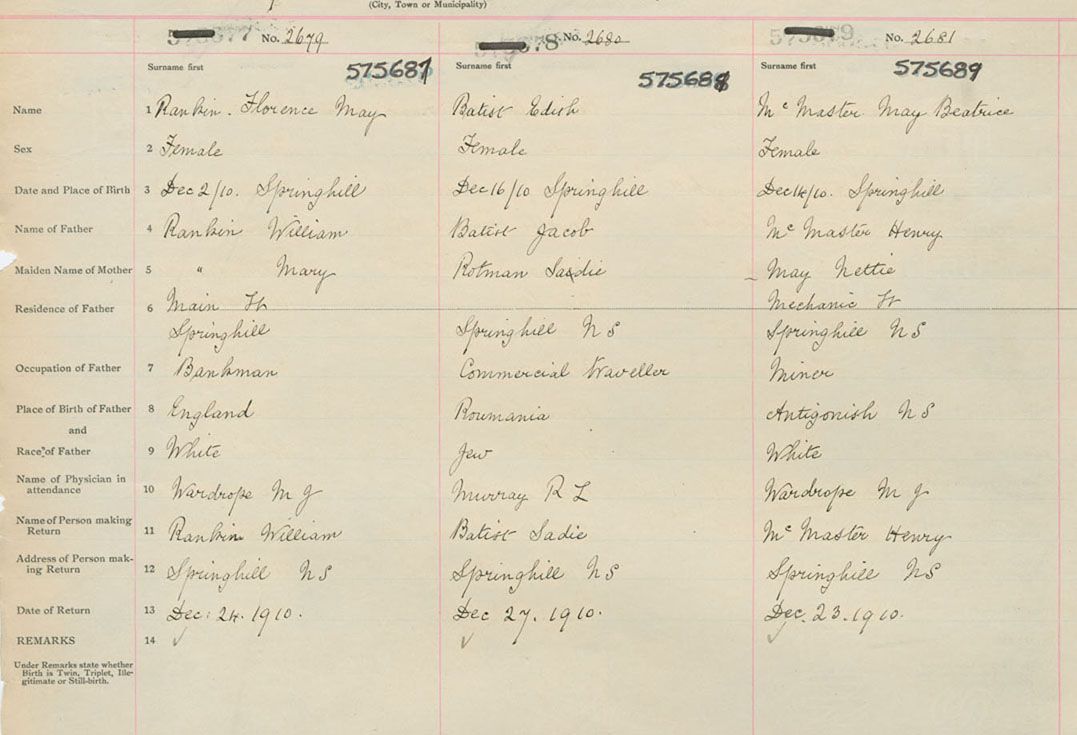 (City, Town or Municipality)
No. 2679 No. 2680 No. 2681
Surname first 575687 Surname first 575688 Surname first 575689
Name 1 Rankin. Florence May Batist Edith Mc Master May Beatrice
Sex 2 Female Female Female
Date and Place of Birth 3 Dec 2/10. Springhill Dec 16/10 Springhill Dec 14/10. Springhill
Name of Father 4 Rankin William Batist Jacob Mc Master Henry
Maiden Name of Mother 5 " Mary Rotman Saidie May Nettie
Residence of Father 6 Main St Mechanic St
Springhill Springhill N S Springhill N S
Occupation of Father 7 Bankman Commercial Traveller Miner
Place of Birth of Father 8 England Roumania Antigonish N S
and
Race of Father 9 White Jew White
Name of Physician in
attendance 10 Wardrope M J Murray R L Wardrope M J
Name of Person making
Return 11 Rankin William Batist Sadie Mc Master Henry
Address of Person mak-
ing Return 12 Springhill N S Springhill N S Springhill N S
Date of Return 13 Dec. 24. 1910. Dec 27. 1910. Dec. 23. 1910.
REMARKS 14
Under Remarks state whether
Birth is Twin, Triplet, Ille-
gitimate or Still-birth.